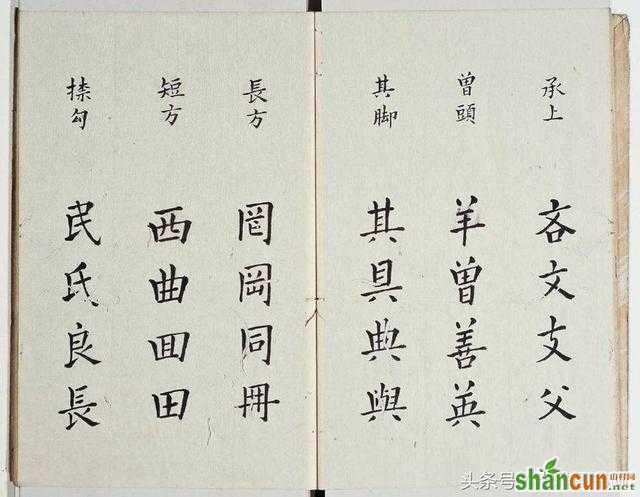 承上
吝文支父
曾頭
羊曾善英
其脚
其具典與
長方
罔岡同冊
短方
西曲囬田
捺勾
民氏良長
头条号
shancun
山村网
.net